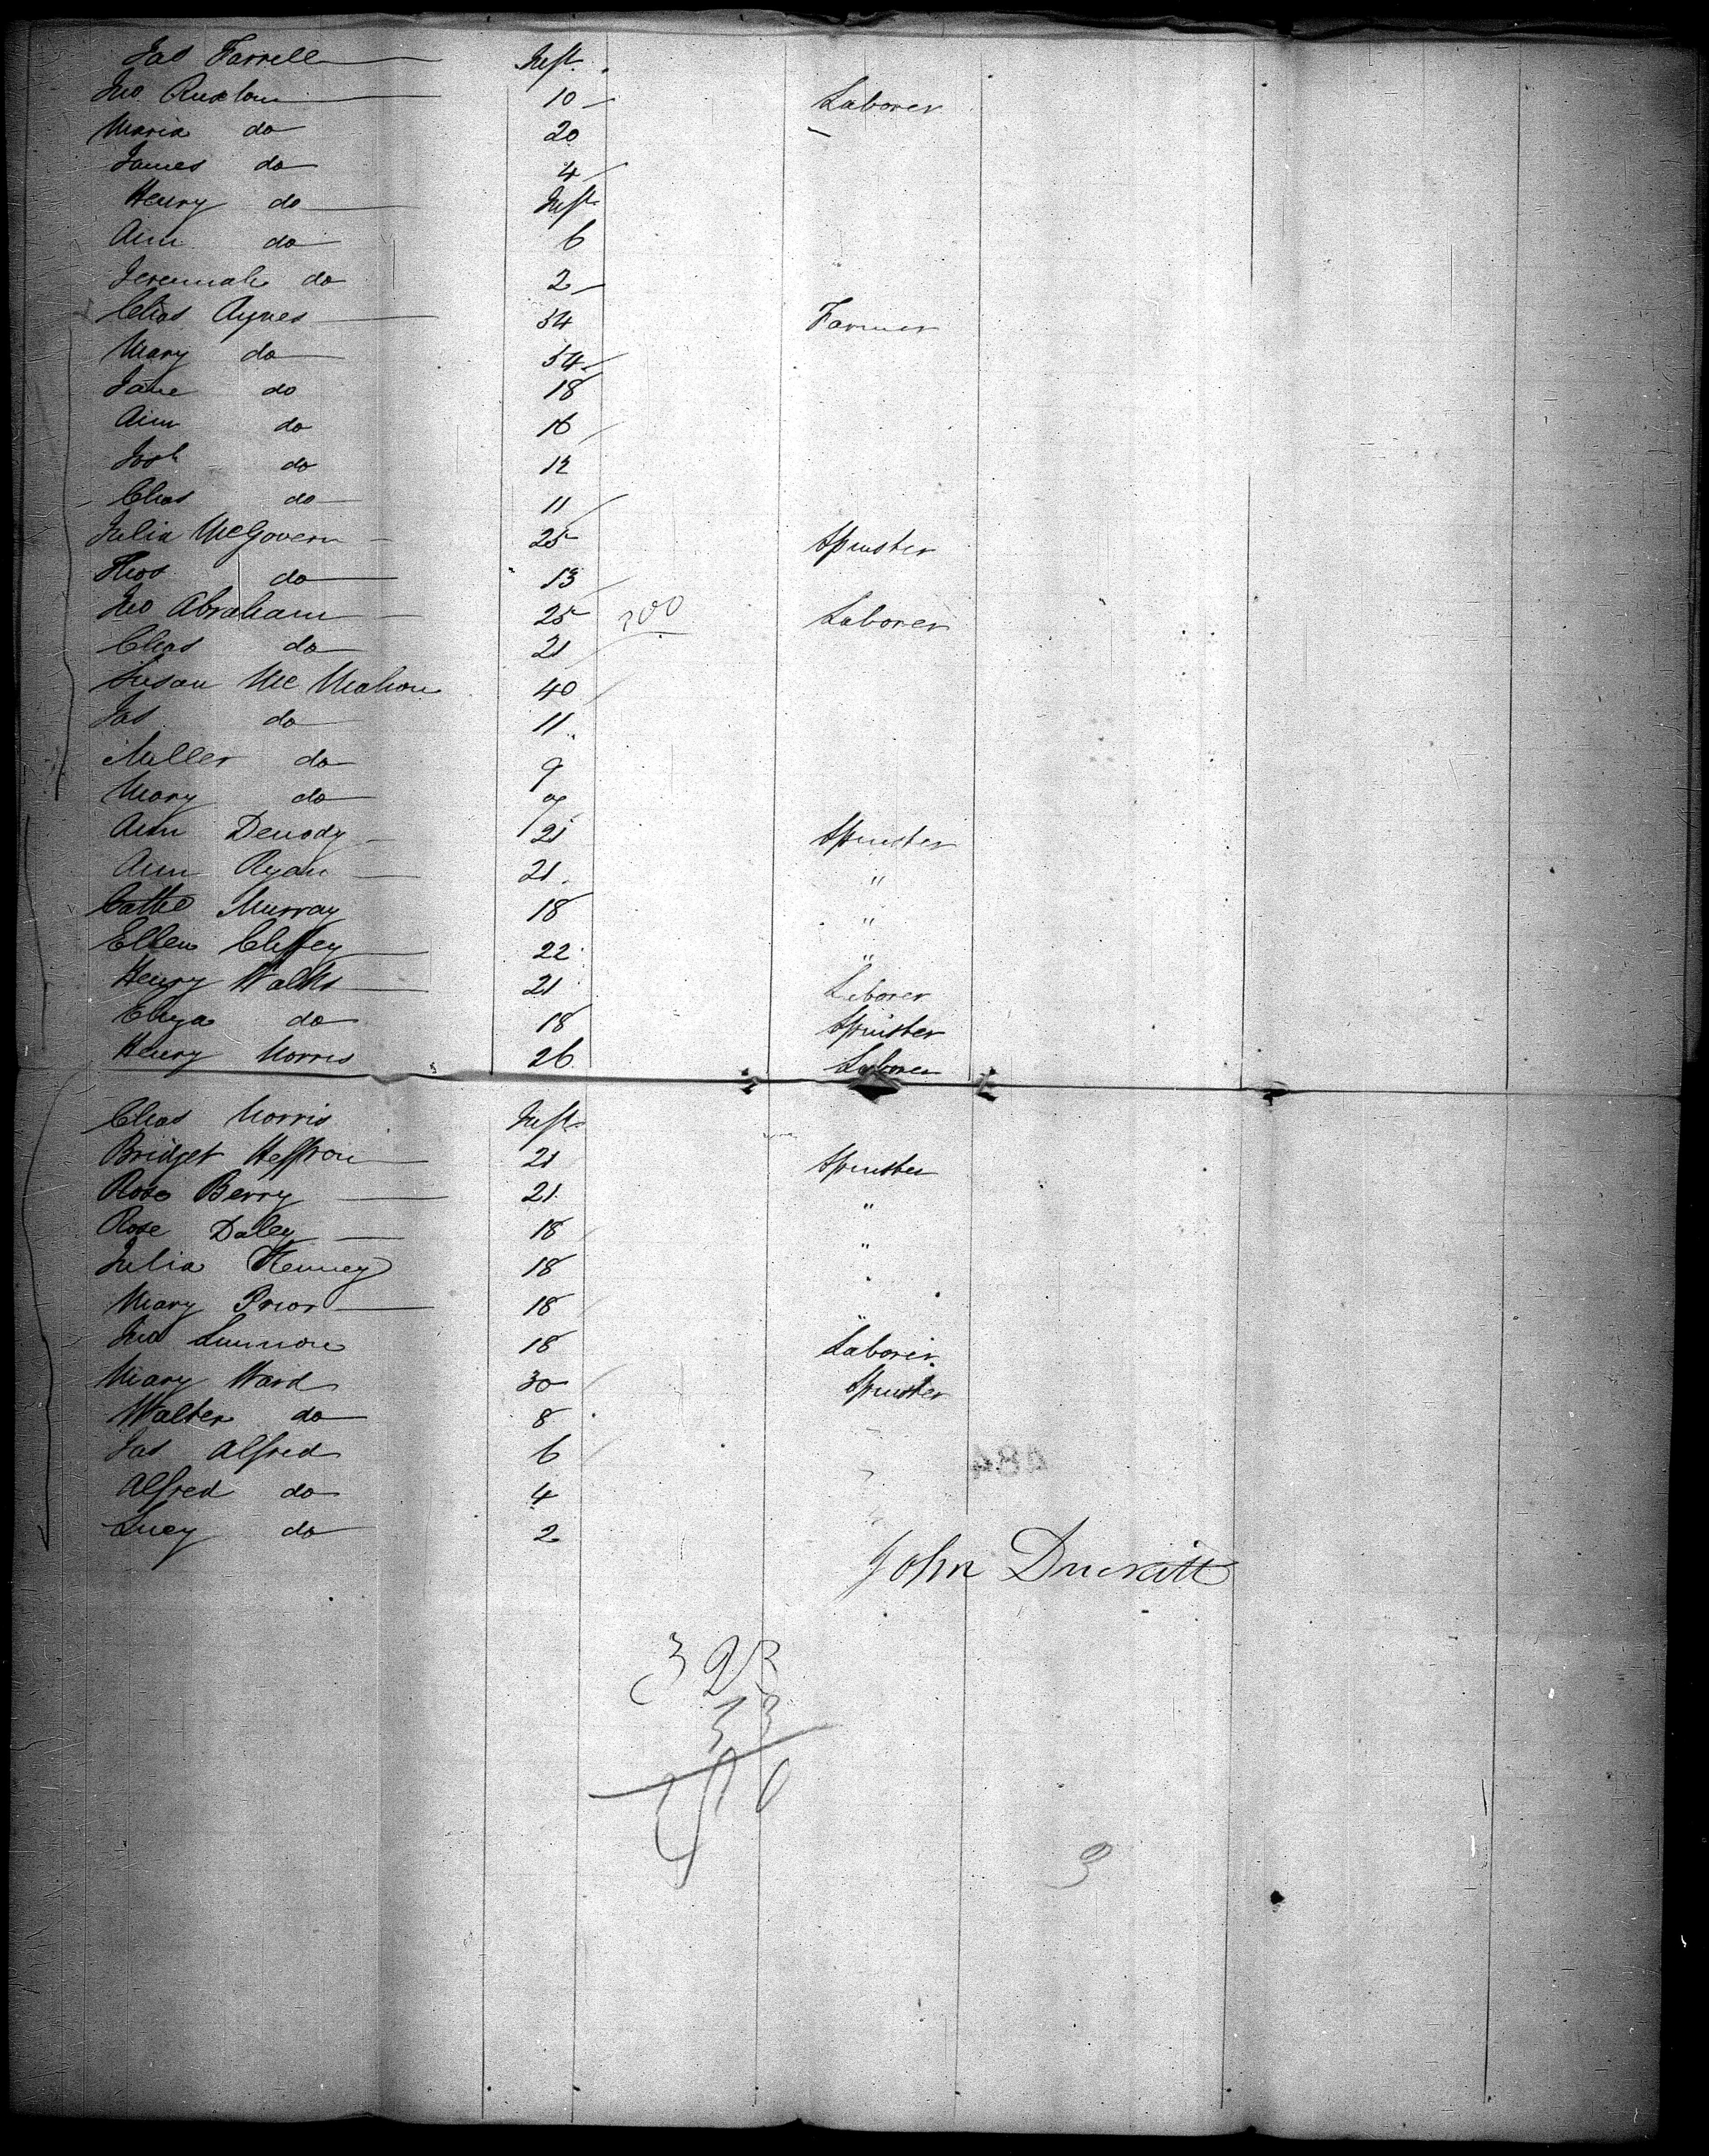 Jas Farrell Inft.
Jno Ruxlow 10 Laborer
Maria do 20
James do 4
Henry do Inft
Ann do 6
Jeremiah do 2
Chas Aynes 54 Farmer
Mary do 54
Jane do 18
Ann do 16
Josh do 12
Chas do 11
Julia McGovern 25 Spinster
Thos do 13
Jno Abraham 25 200 Laborer
Chas do 21
Susan Mc Mahon 40
Jas do 11
Miller do 9
Mary do
Ann Denody 21 Spinster
Ann Ryan 21 "
Cathe Murray 18 "
Ellen Cliffey 22 "
Henry Walks 21 Laborer
Eliza do 18 Spinster
Henry Morris 26 Laborer
Chas Morris Inft
Bridget Heffron 21 Spinster
Rose Berry 21 "
Rose Daley 18 "
Julia Kenney 18 "
Mary Prior 18 "
Jno Lennon 18 Laborer
Mary Ward 30 Spinster
Walter do 8
Jas Alfred 6
Alfred do 4
Lucy do 2
John Duckitt
323
33